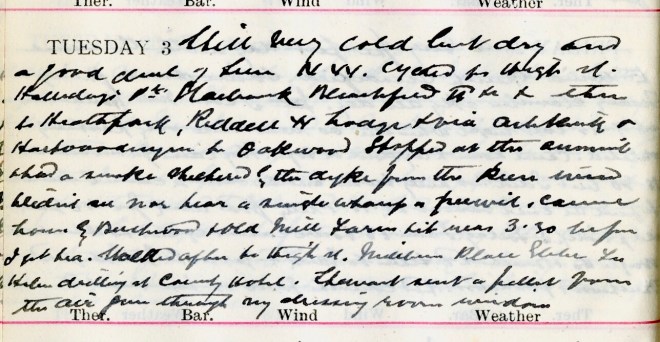 Ther. Bar. Wind Weather
TUESDAY 3 Still very cold but dry and
a good deal of sun N W. Cycled to High St.
Halliday's Pk. Blackford & then
to Heathpark, Riddell N Lodge & via
to Oakwood Stopped at the summit
& had a smoke sheltered by the dyke from the keen wind
& didn't see nor hear a single whaup or peewit. Came
home by & old Mill Farm but was 3.30 before
I got tea. Walked after to High St.
Helen drilling at County Hotel. Stewart sent a pellet from
the air gun through my dressing room window
Ther. Bar. Wind Weather